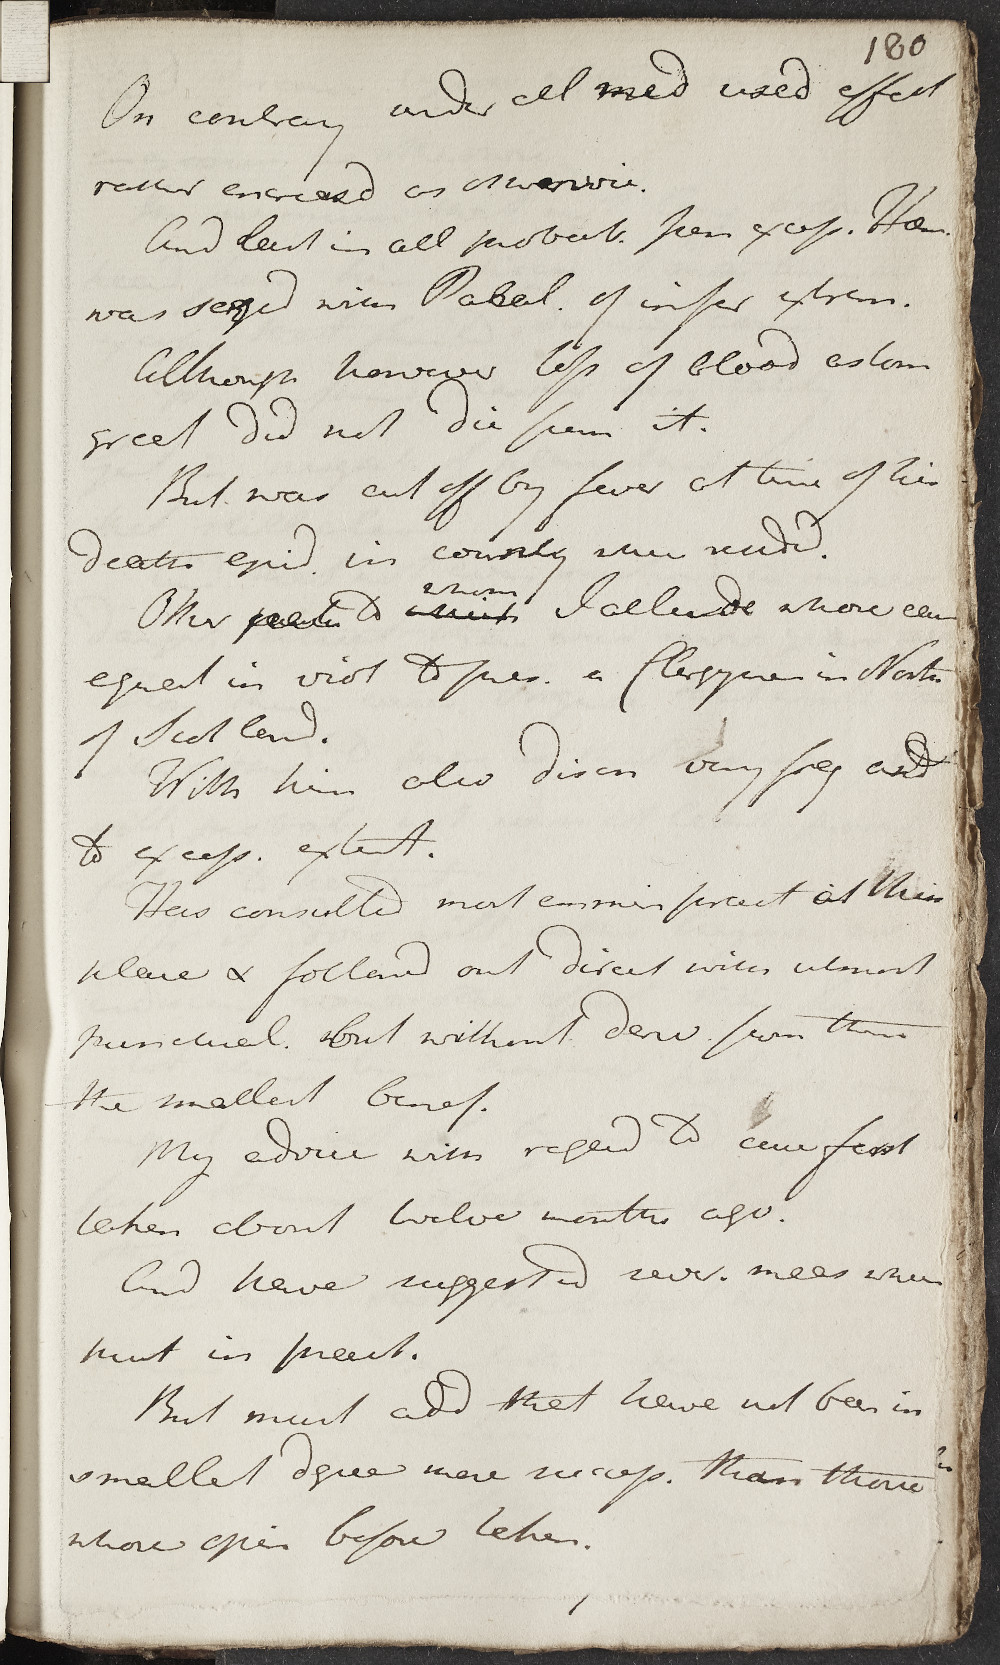 180
On contrary under all med used effect
rather encreasd as otherwise.
And last in all probab. from excess. Hæm.
was seized with Paral. of infer extrem.
Although however loss of blood astom
great did not die from it.
But was cut off by fever at time of his
death epid. in country where resid.
Other to whom I allude whose case
equal in viol to pres. a Clergyman in North
of Scotland.
With him also discn very freq and
to excess. extent.
Has consulted most eminen pract at this
place & followed out direct with utmost
punctual. but without deriv. from them
the smallest benef.
My advice with regard to case first
taken about twelve months ago.
And have suggested sever. meas when
put in pract.
But must add that have not been in
smallest dgree more success. than those
whose opin before taken.